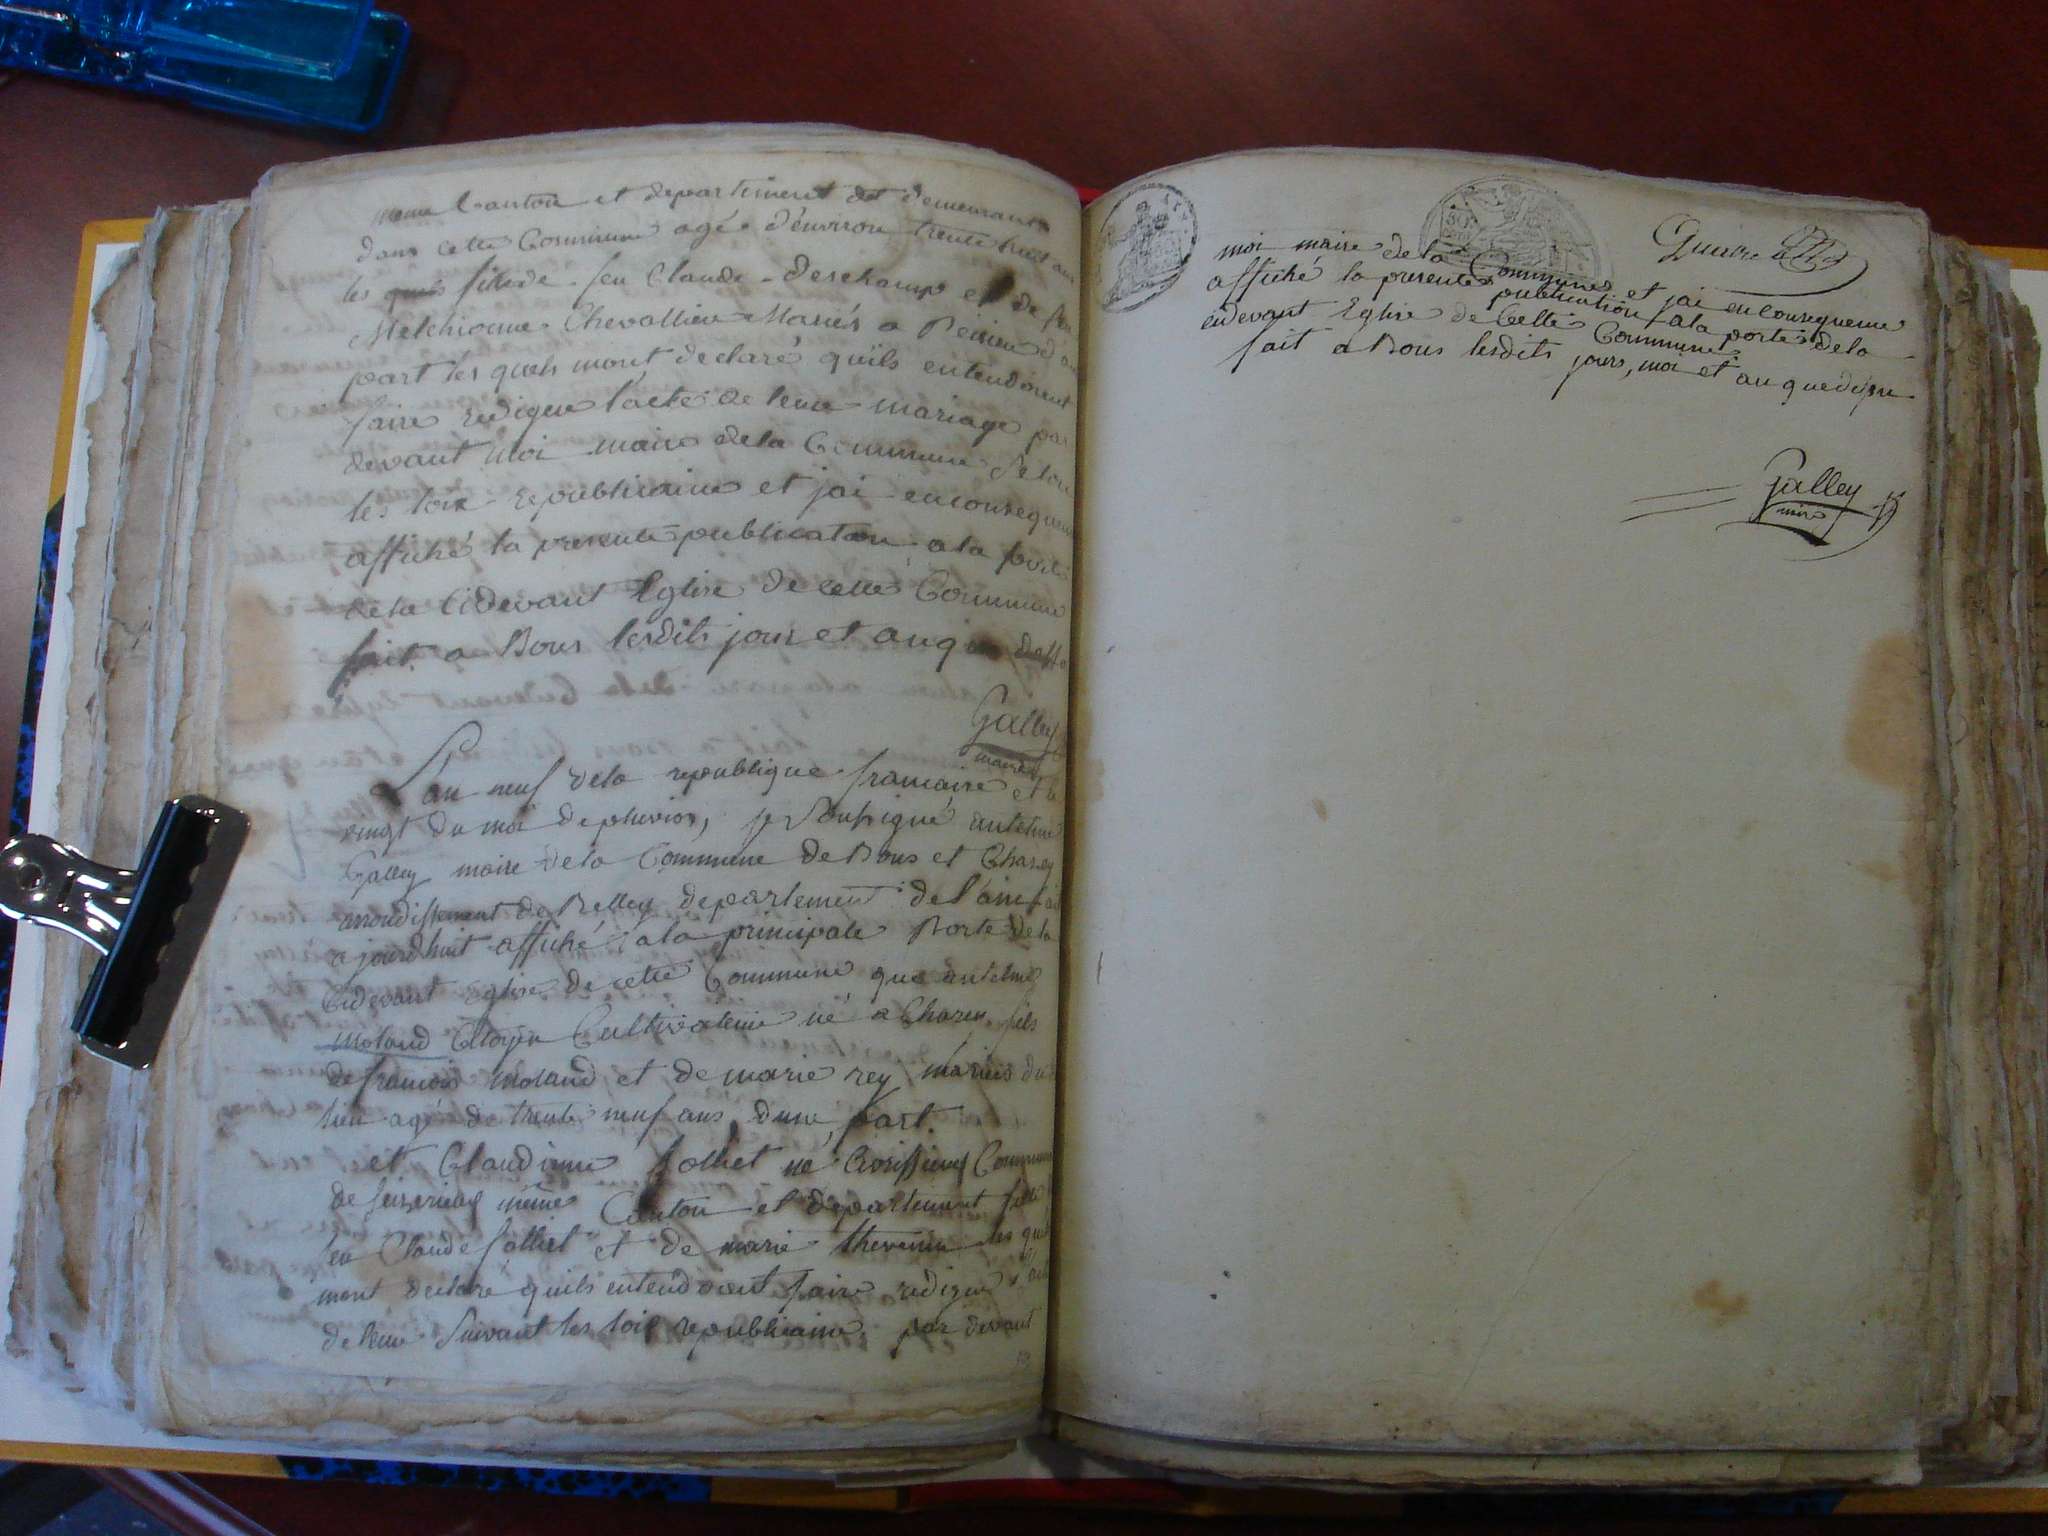 meme Canton et departement et demeurant
dans cette Commune agé d'environ trente huit ans
les quels fils de feu Claude Deschamp et de feu
Melchionne Chevallier Mariés a Peirieu d'a
part les quels mont declaré quils entendoient
faire rediger l'acte de leur mariage par
devant moi maire de la Commune selon
les loix republicaine et jai en consequen
affiché la presente publication a la porte
de la Cidevant Eglise de cette Commune
fait a Bons lesdits jour et an que dessu
Galley
maire
L'an neuf de la republique francaise et le
vingt du moi de pluvios, je Soussigné antelme
Galley maire de la Commune de Bons et Charey
arrondissement de Belley departement de l'ain fai
a jourdhuit affiché a la principale Porte de la
Cidevant Eglise de cette Commune que antelme
moland Citoyen Cultivateur né a Charey fils
de francois moland et de marie rey mariés du
lieu agé de trente neuf ans, dune part.
et Claudinne Jolliet né Commune
de même Canton et departement fille
feu Claude Jolliet et de marie thevenin les quel
mont declaré quils entendoient faire rediger
de leur Suivant les loix republicaine par devant
moi maire de la Commune et jai en consequenne
affiché la presente publication a la porte de la
cidevant Eglise de Cette Commune
fait a Bons lesdits jours, moi et an que desu
Galley
maire